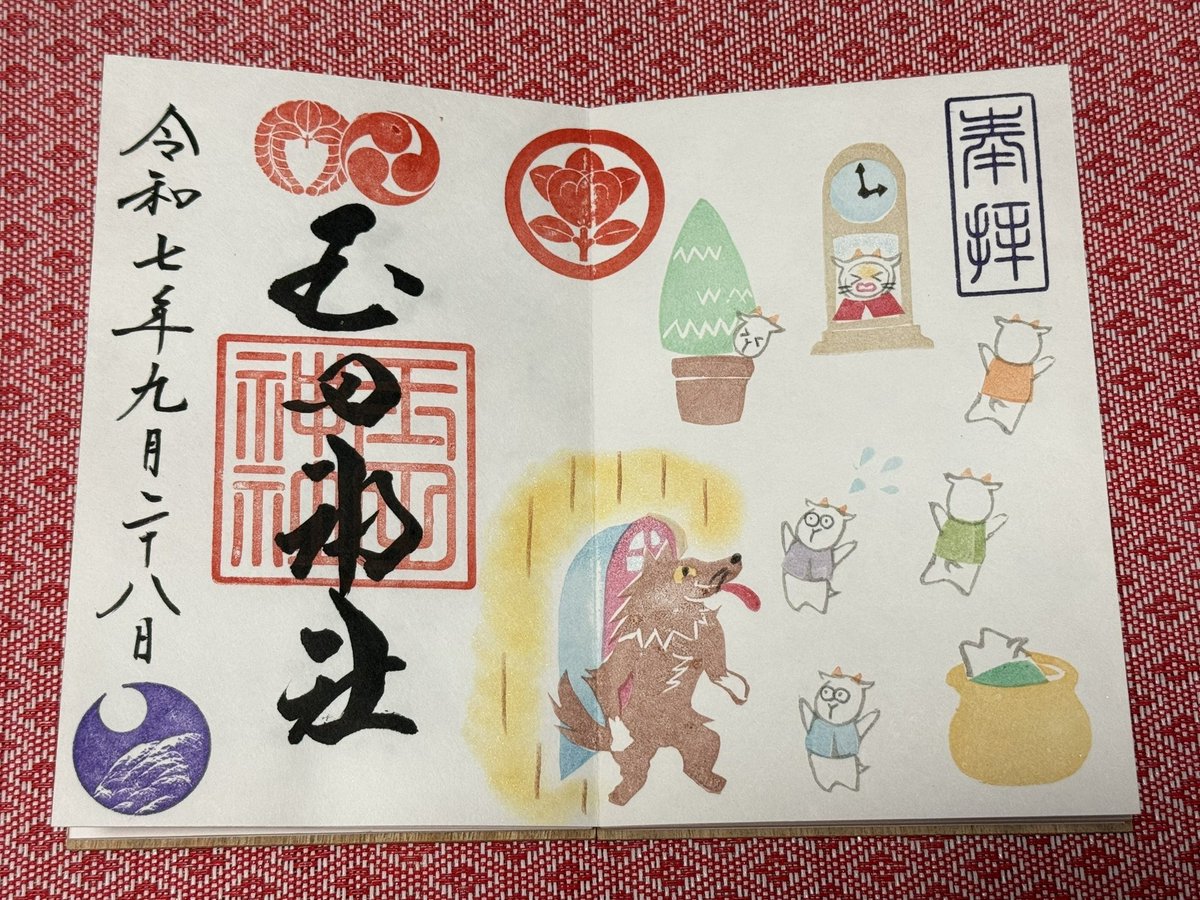 奉拝
玉田神社
玉田
神社
令和七年九月二十八日